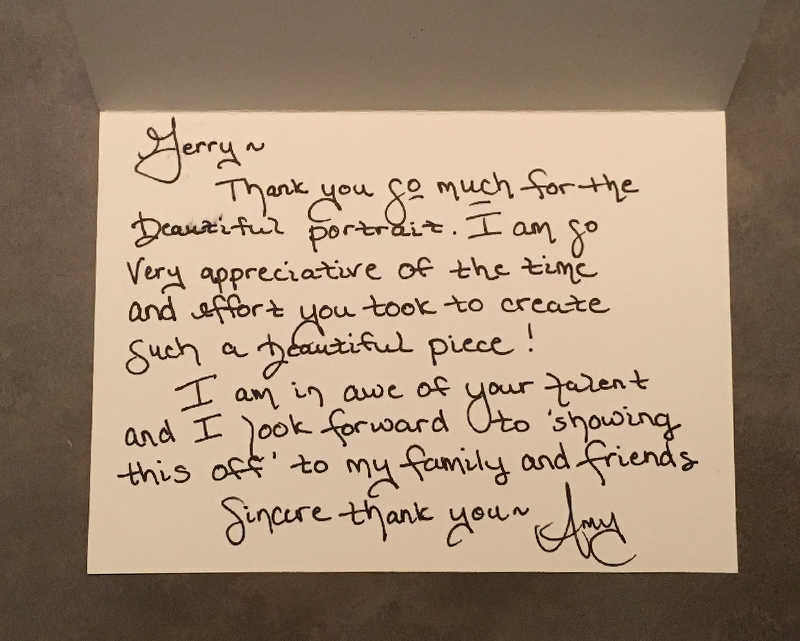 Gerry~
Thank you so much for the
beautiful portrait. I am so
very appreciative of the time
and effort you took to create
such a beautiful piece!
I am in awe of your talent
and I look forward to 'showing
this off' to my family and friends
Sincere thank you~ Amy